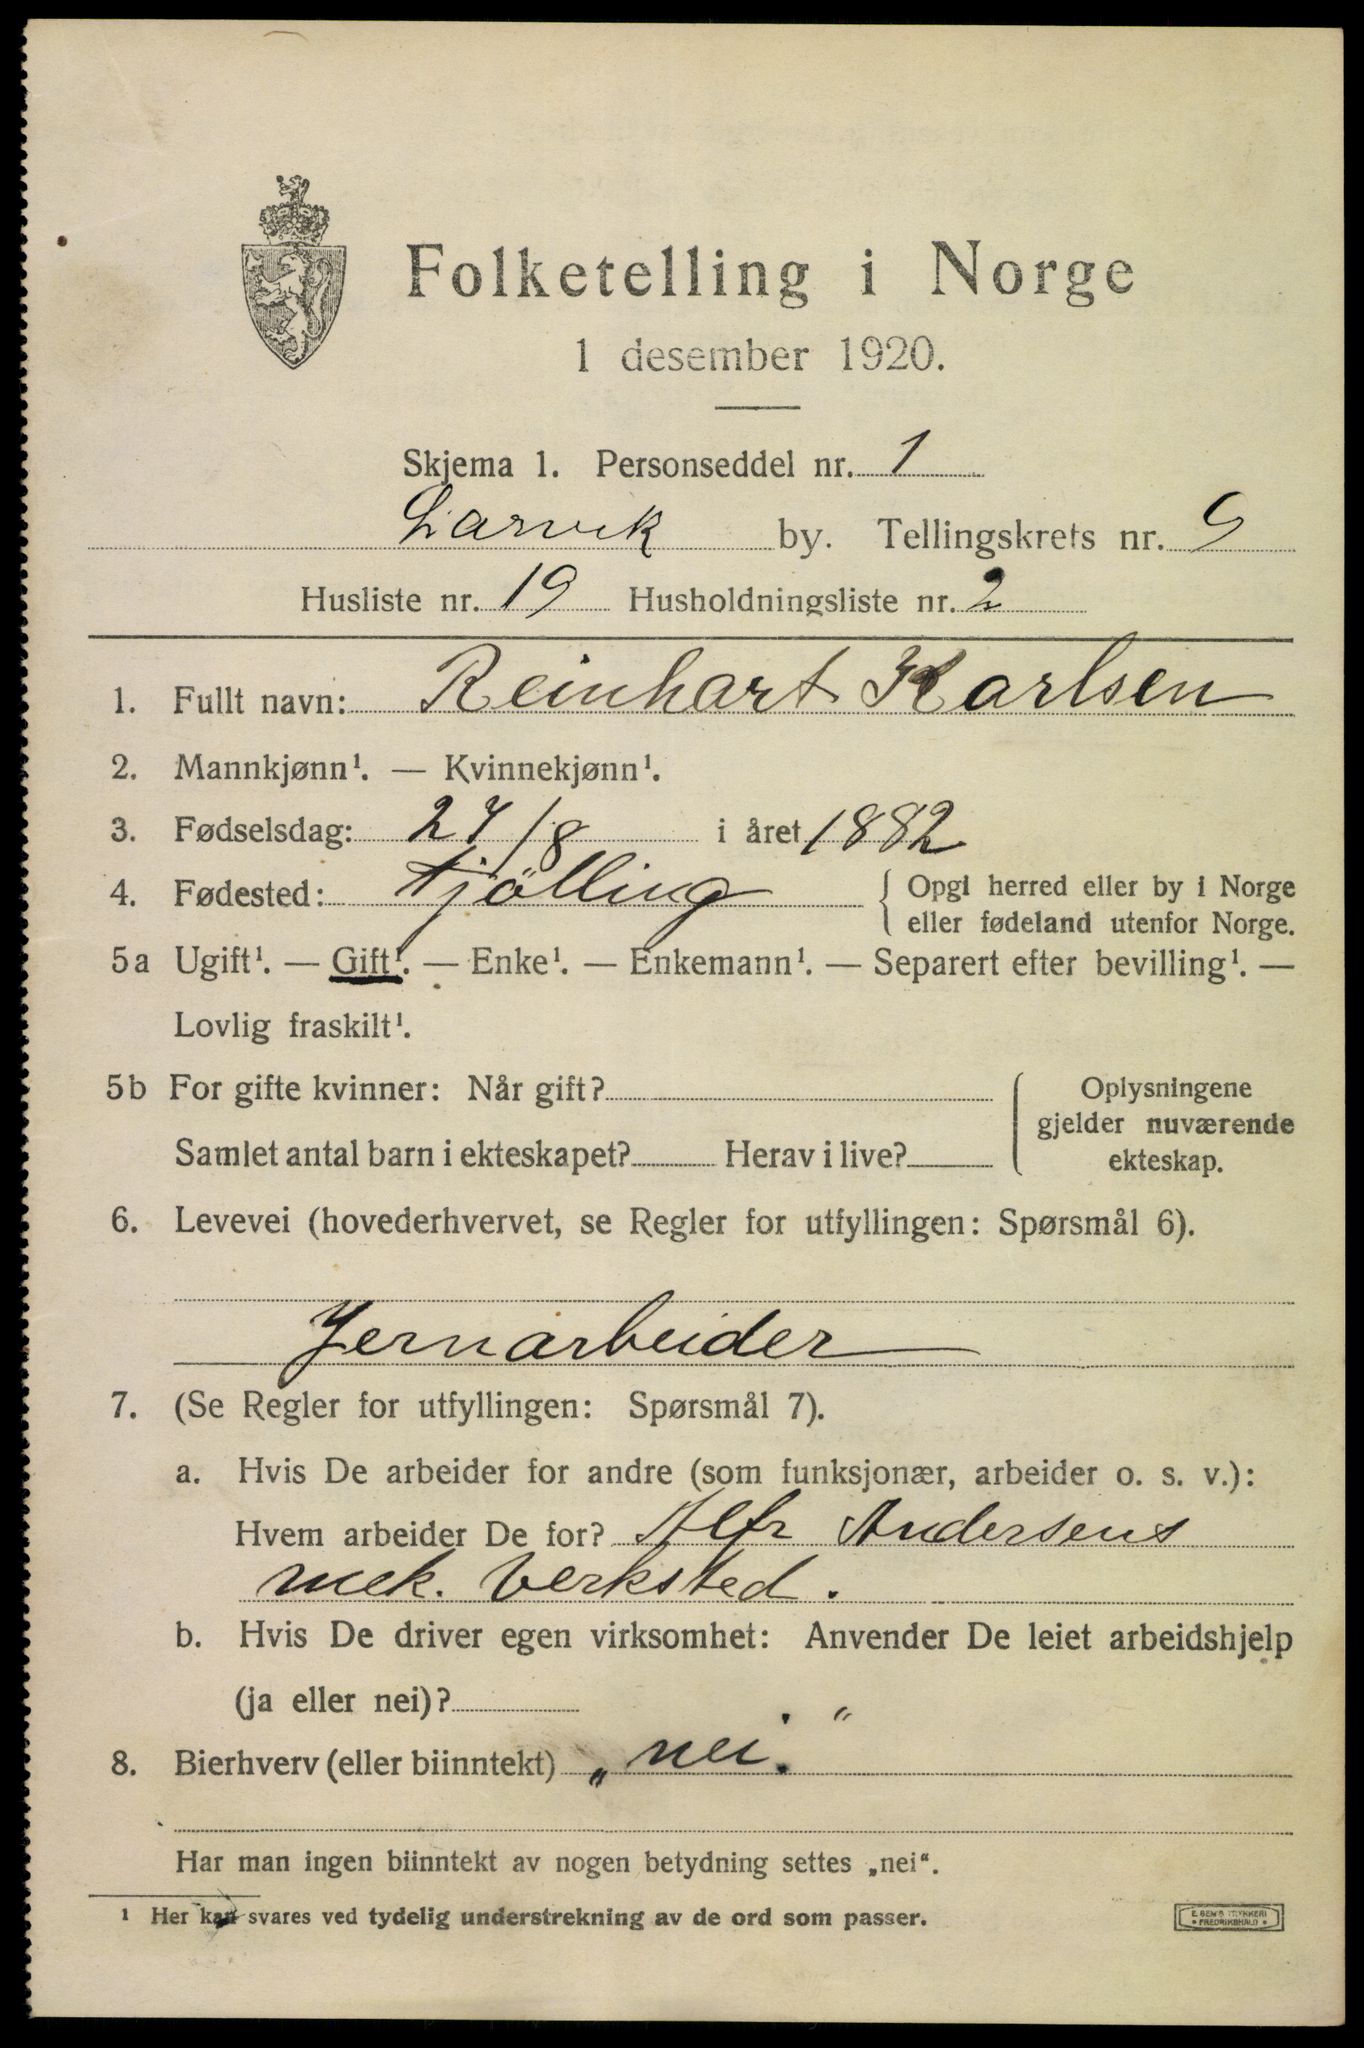 Folketelling i Norge
1 desember 1920.
Skjema 1. Personseddel nr. 1
Larvik by. Tellingskrets nr. 9
Husliste nr. 19 Husholdningsliste nr. 2
1. Fullt navn: Reinhart Karlsen
2. Mannkjønn¹. — Kvinnekjønn¹.
3. Fødselsdag: 27/8 i året 1882
4. Fødested: Tjölling { Opgi herred eller by i Norge
eller fødeland utenfor Norge.
5a Ugift¹. — Gift¹. — Enke¹. — Enkemann¹. — Separert efter bevilling¹. —
Lovlig fraskilt¹.
5b For gifte kvinner: Når gift? Oplysningene
gjelder nuværende
Samlet antal barn i ekteskapet? Herav i live? ekteskap.
6. Levevei (hovederhvervet, se Regler for utfyllingen: Spørsmål 6).
Jernarbeider
7. (Se Regler for utfyllingen: Spørsmål 7).
a. Hvis De arbeider for andre (som funksjonær, arbeider o. s. v.):
Hvem arbeider De for? Alfr Andersens
mek. Verksted.
b. Hvis De driver egen virksomhet: Anvender De leiet arbeidshjelp
(ja eller nei)?
8. Bierhverv (eller biinntekt) „nei.“
Har man ingen biinntekt av nogen betydning settes „nei“.
¹ Her kan svares ved tydelig understrekning av de ord som passer.
FREDRIKSHALD